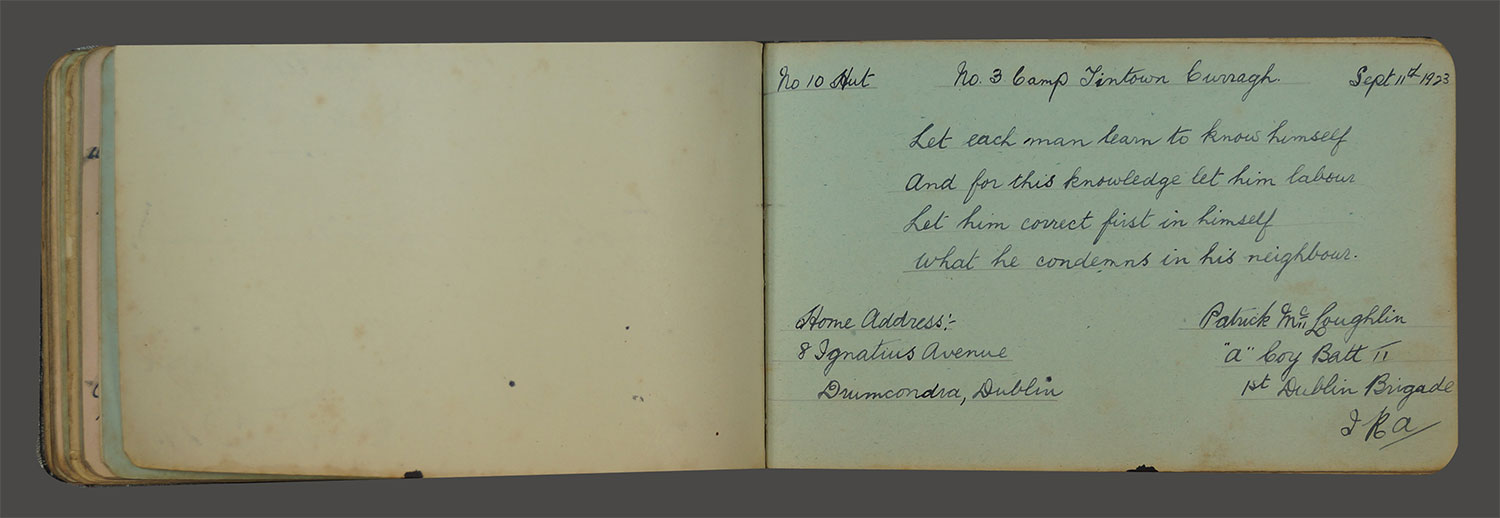 No 10 Hut No. 3 Camp Tintown Curragh. Sept 11th 1923
Let each man learn to know himself
And for this knowledge let him labour
Let him correct first in himself
What he condemns in his neighbour.
Home Address:-
8 Ignatius Avenue
Drumcondra, Dublin
Patrick McLoughlin
"A" Coy Batt II
1st Dublin Brigade
I R A